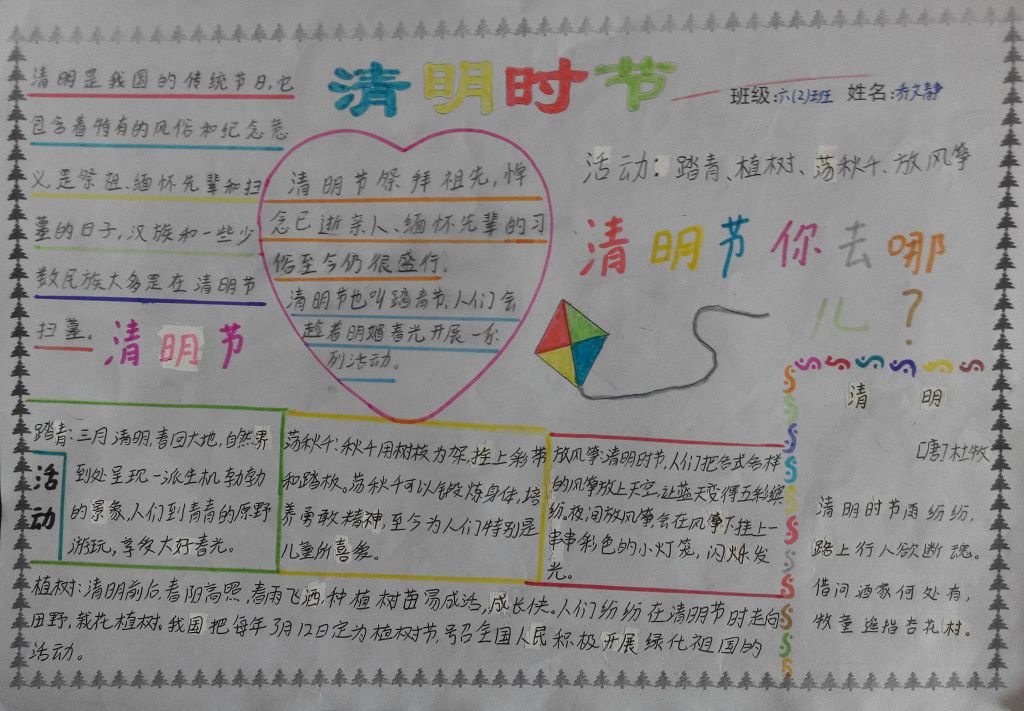 清明时节
班级:六(2)班 姓名:乔文静
清明是我国的传统节日,它
包含着特有的风俗和纪念意
义,是祭祖、缅怀先辈和扫
墓的日子,汉族和一些少
数民族大多是在清明节
扫墓。
清明节
清明节祭拜祖先,悼
念已逝亲人、缅怀先辈的习
俗至今仍很盛行。
清明节也叫踏青节,人们会
趁着明媚春光开展一系
列活动。
活动:踏青、植树、荡秋千、放风筝
清明节你去哪
儿?
活
动
踏青:三月清明,春回大地,自然界
到处呈现一派生机勃勃
的景象,人们到青青的原野
游玩,享受大好春光。
荡秋千:秋千用树枝为架,拴上彩带
和踏板。荡秋千可以锻炼身体,培
养勇敢精神,至今为人们特别是
儿童所喜爱。
放风筝:清明时节,人们把各式各样
的风筝放上天空,让蓝天变得五彩缤
纷。夜间放风筝,会在风筝下挂上一
串串彩色的小灯笼,闪烁发
光。
植树:清明前后,春阳高照,春雨飞洒,种植树苗易成活,成长快。人们纷纷在清明节时走向
田野,栽花植树。我国把每年3月12日定为植树节,号召全国人民积极开展绿化祖国的
活动。
清 明
[唐]杜牧
清明时节雨纷纷,
路上行人欲断魂。
借问酒家何处有,
牧童遥指杏花村。